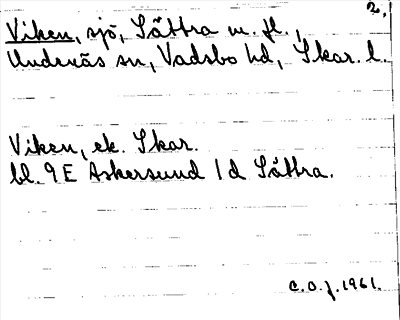 2.
Viken, sjö, Sättra m. fl.,
Undenäs sn, Vadsbo hd, Skar. l.
Viken, ek. Skar.
bl. 9 E Askersund 1d Sättra.
C.O.J. 1961.